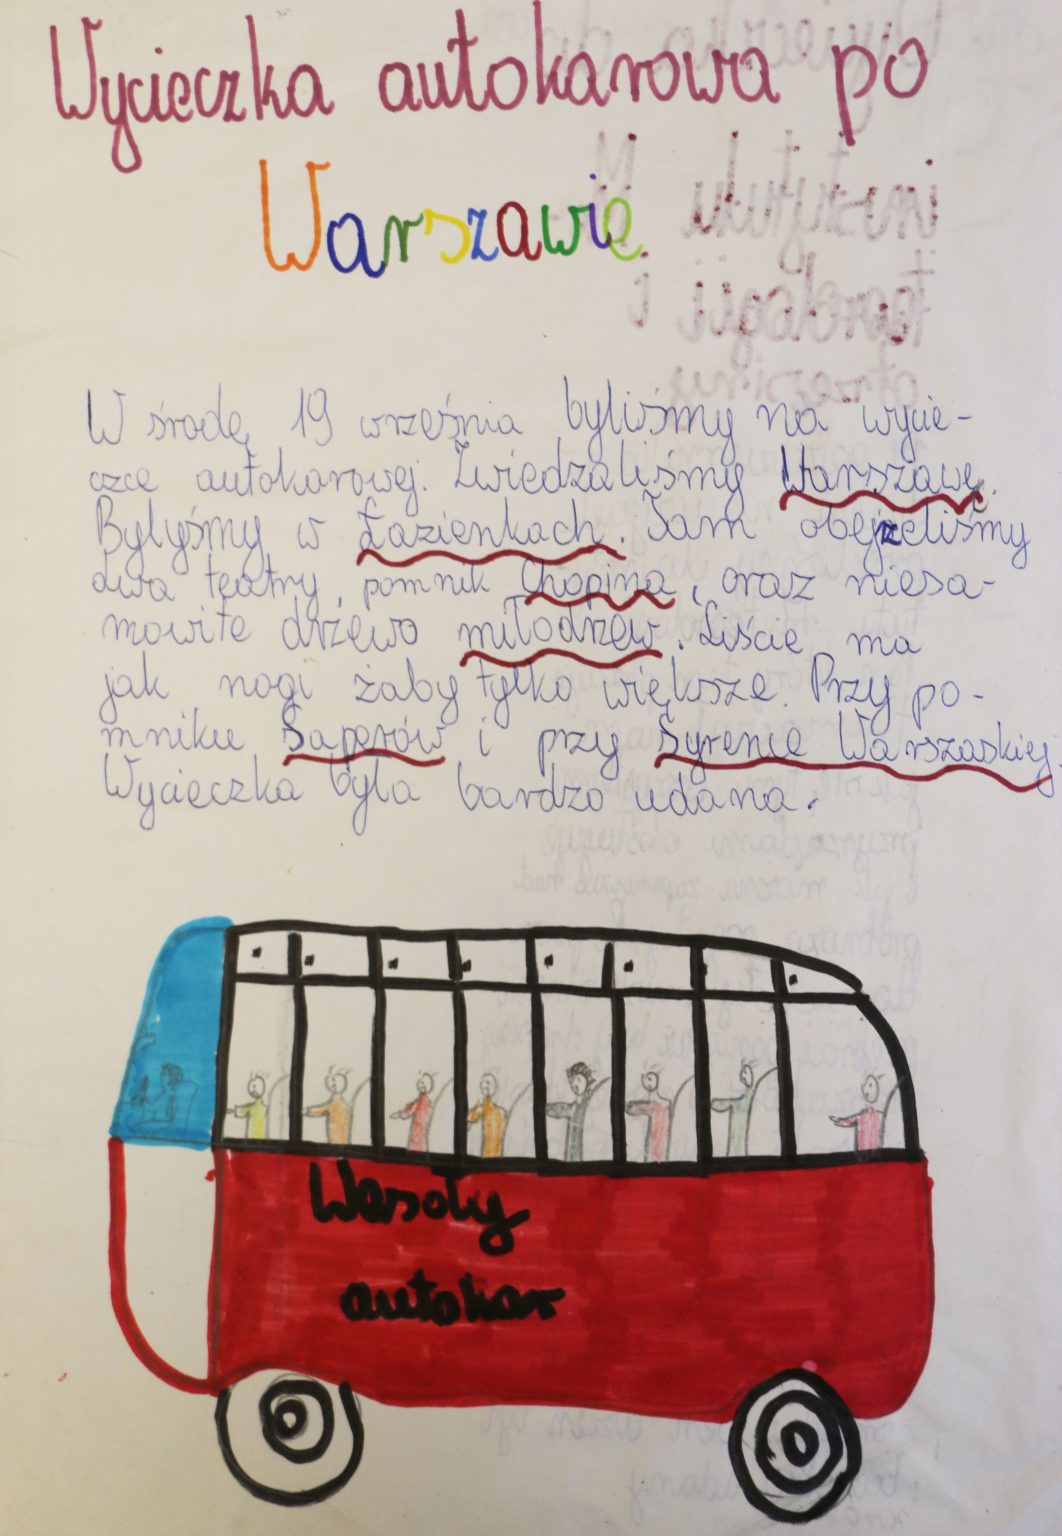 Wycieczka autokarowa po
Warszawie
W środę 19 września byliśmy na wycie-
czce autokarowej. Zwiedzaliśmy Warszawę.
Byłyśmy w Łazienkach. Tam obejrzeliśmy
dwa teatry, pomnik Chopina, oraz niesa-
mowite drzewo miłodrzew. Liście ma
jak nogi żaby tylko większe. Przy po-
mniku Saperów i przy Syrenie Warszaskiej.
Wycieczka była bardzo udana.
Wesoły
autokar